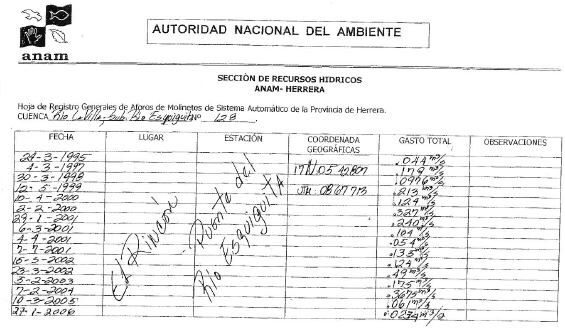 AUTORIDAD NACIONAL DEL AMBIENTE
anam
SECCIÓN DE RECURSOS HIDRICOS
ANAM- HERRERA
Hoja de Registro Generales de Aforos de Molinetes de Sistema Automático de la Provincia de Herrera.
CUENCA Río La Villa, Sub. Río Esquiguita Nº 128.
FECHA LUGAR ESTACIÓN COORDENADA GEOGRÁFICAS GASTO TOTAL OBSERVACIONES
El Rincón
Puente del
Río Esquiguita
24-3-1995 .044 m³/s
4-3-1997 17N:0542807 .179 m³/s
30-3-1998 .0976 m³/s
12-5-1999 0867713 .213 m³/s
10-4-2000 .124 m³/s
2-2-2000 .327 m³/s
29-1-2001 .240 m³/s
6-3-2001 .104 m³/s
4-4-2001 .054 m³/s
7-7-2001 .135 m³/s
15-3-2002 .124 m³/s
23-3-2002 .49 m³/s
5-2-2003 .175 m³/s
7-2-2004 .3675 m³/s
10-3-2005 .061 m³/s
27-1-2006 .0234 m³/s